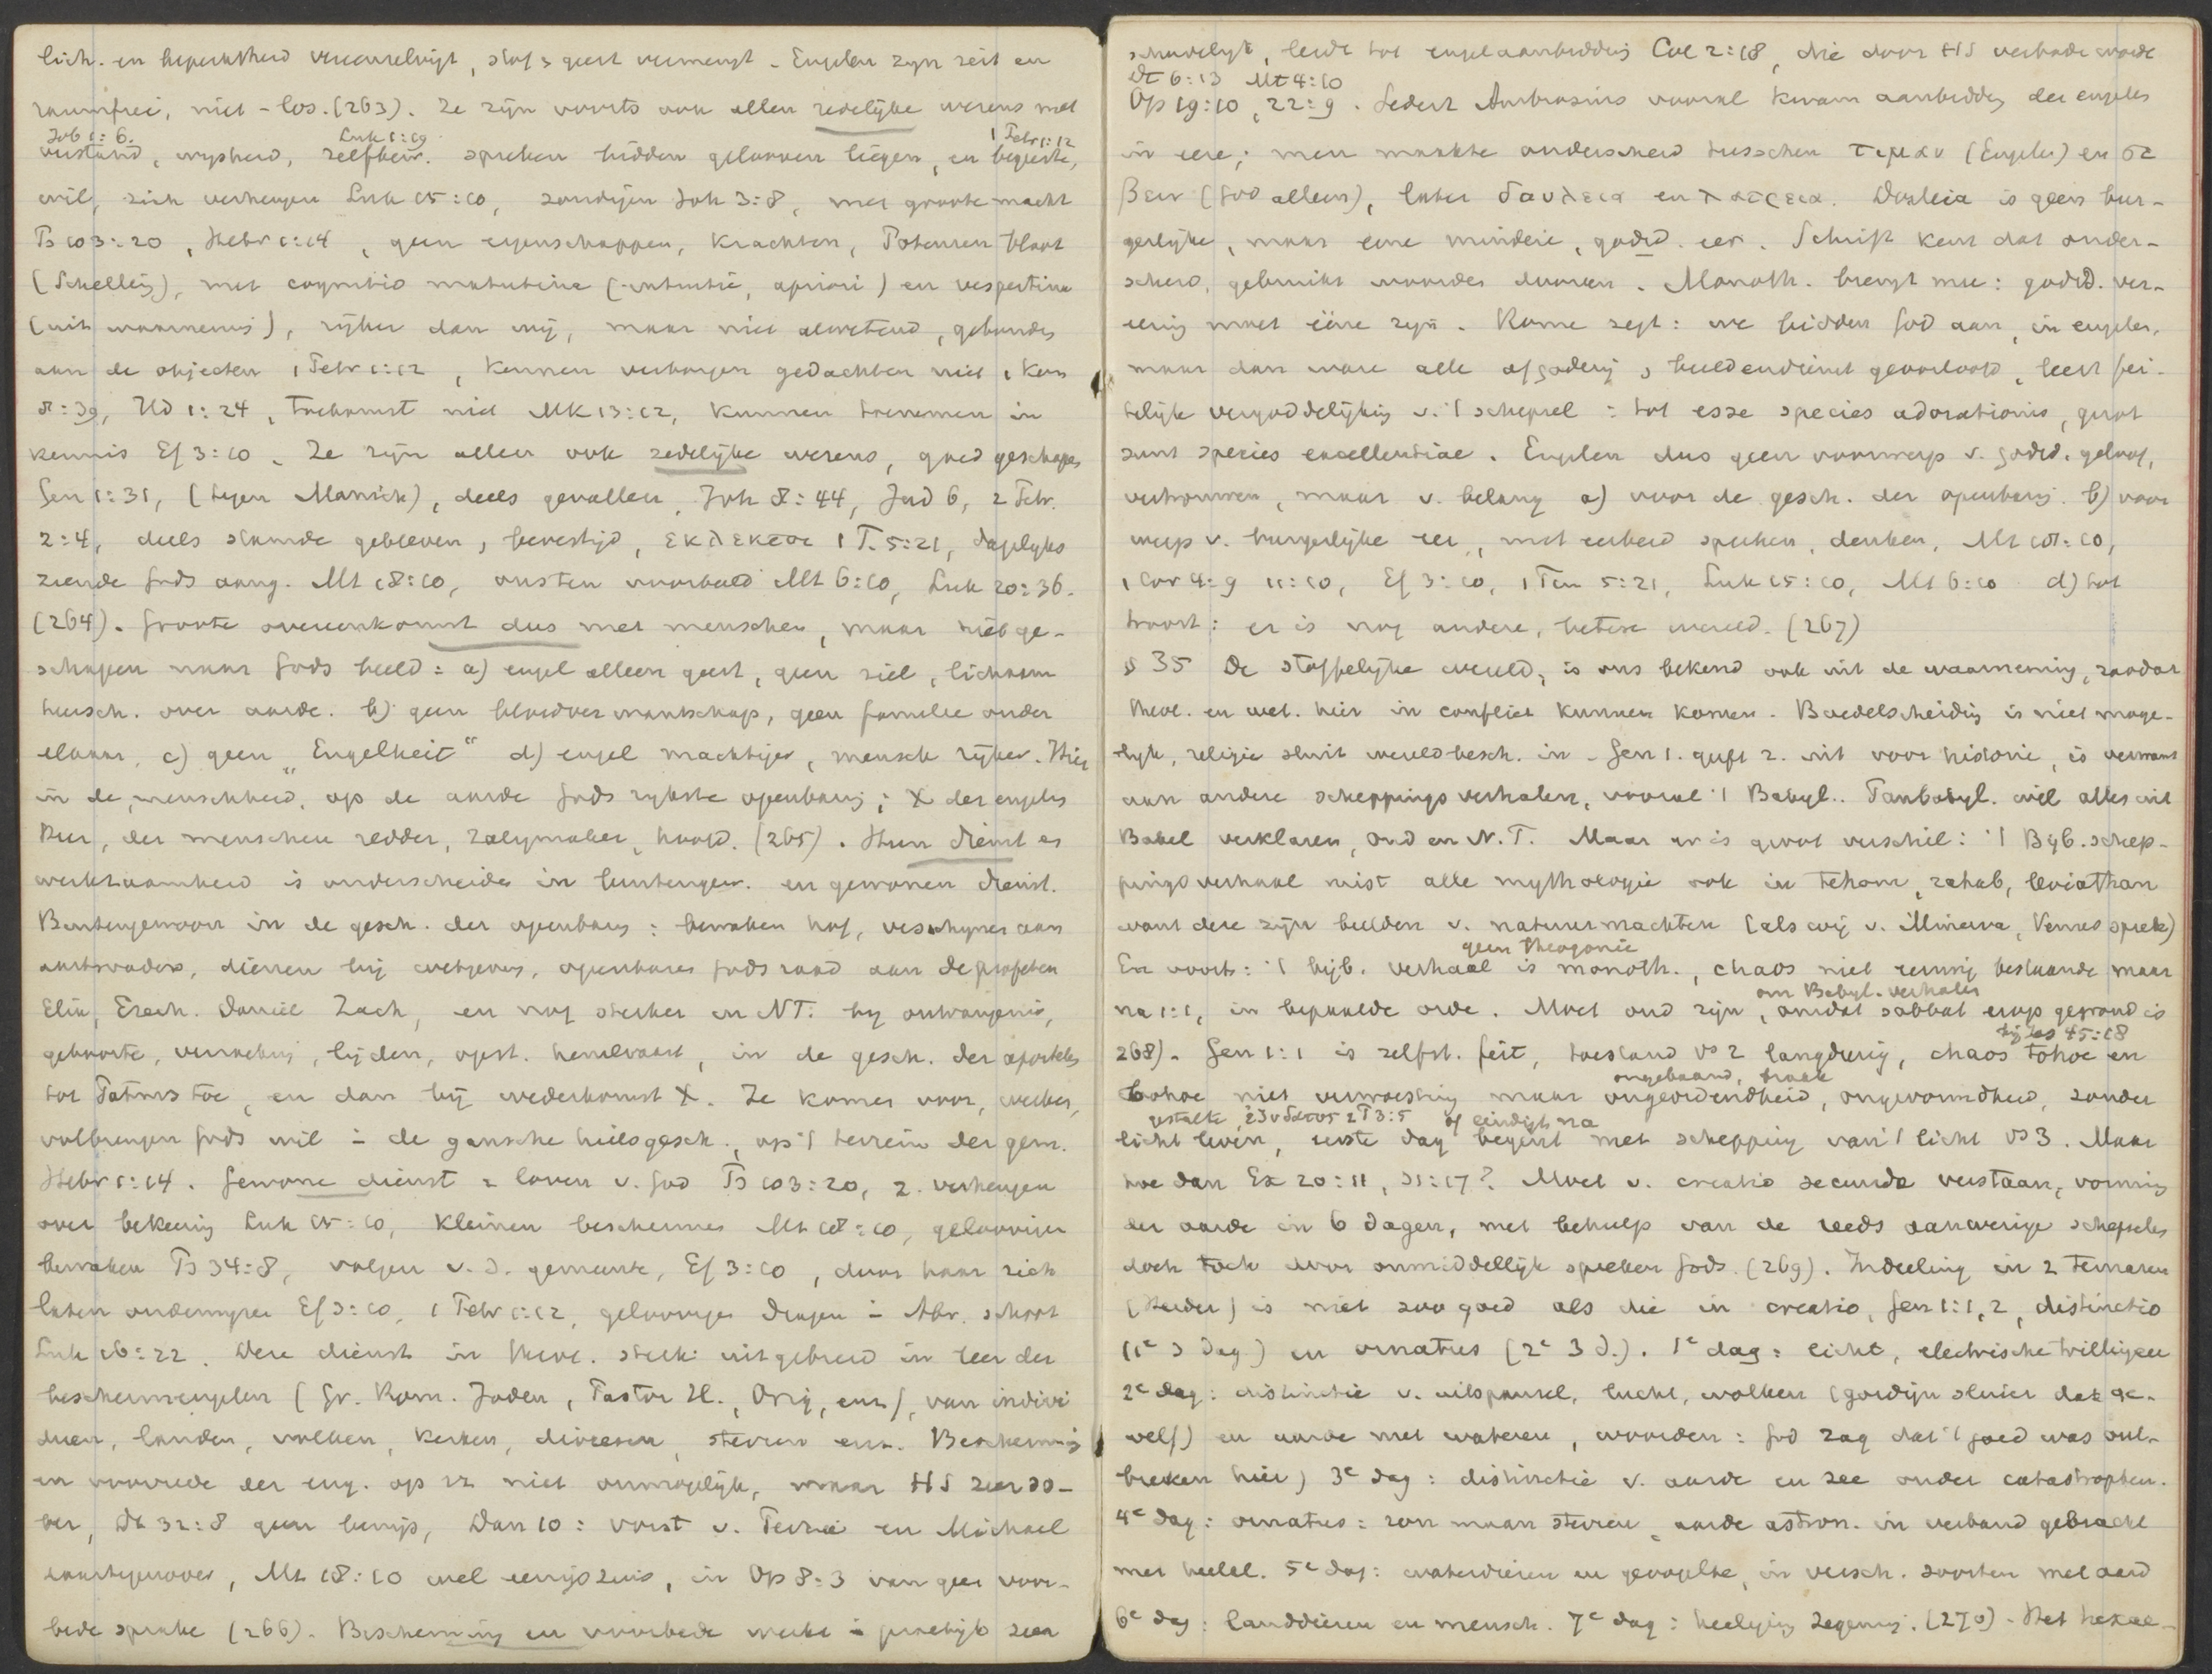 lich. en beperktheid vereenzelvigt, stof & geest vermengt - Engelen zyn zeit en
raumfrei, niet - los. (263). Ze zijn voorts ook allen redelijke wezens met
Job 1:6. Luk 1:19 1 Petr 1:12
verstand, wysheid, zelfbew. spreken bidden gelooven liegen, en begeerte,
wil, zich verheugen Luk 15:10, zondigen Joh 3:8, met groote macht
Ps 103:20, Hebr 1:14, geen eigenschappen, krachten, Potenzen bloot
(Schelling), met cognitio matutina (intuitie, apriori) en vespertina
(uit waarneming), rijker dan wij, maar niet alwetend, gebonden
aan de objecten 1 Petr 1:12, kennen verborgen gedachten niet 1 Kon
8:39, Hd 1:24, toekomst niet Mk 13:12, kunnen toenemen in
kennis Ef 3:10. Ze zijn allen ook zedelijke wezens, goed geschapen
Gen 1:31, (tegen Manich), deels gevallen, Joh 8:44, Jud 6, 2 Petr.
2:4, deels staande gebleven, bevestigd, εκλεκτοι 1 T. 5:21, dagelyks
ziende Gods aang. Mt 18:10, ons ten voorbeeld Mt 6:10, Luk 20:36.
(264). Groote overeenkomst dus met menschen, maar niet ge-
schapen naar Gods beeld: a) engel alleen geest, geen ziel, lichaam
heersch. over aarde. b) geen bloedverwantschap, geen familie onder
elkaar, c) geen „Engelheit" d) engel machtiger, mensch rijker. Hier
in de menschheid, op de aarde Gods rykste openbaring; X der engelen
Heer, der menschen redder, zaligmaker, hoofd. (265). Hun dienst en
werkzaamheid is onderscheiden in buitengew. en gewonen dienst.
Buitengewoon in de gesch. der openbaring: bewaken hof, verschynen aan
aartsvaders, dienen bij wetgeving, openbaren Gods raad aan de profeten
Elia, Ezech. Daniël Zach, en nog sterker in NT. by ontvangenis,
geboorte, verzoeking, lijden, opst. hemelvaart, in de gesch. der apostelen
tot Patmos toe, en dan bij wederkomst X. Ze komen voor, werken,
volbrengen Gods wil in de gansche heilsgesch., op 't terrein der gem.
Hebr 1:14. Gewone dienst = loven v. God Ps 103:20, 2. verheugen
over bekeering Luk 15:10, kleinen beschermen Mt 18:10, geloovigen
bewaken Ps 34:8, volgen v. d. gemeente, Ef 3:10, door haar zich
laten onderwyzen Ef 3:10, 1 Petr 1:12, geloovigen dragen in Abr. schoot
Luk 16:22. Deze dienst in theol. sterk uitgebreid in leer der
beschermengelen (Gr. Rom. Joden, Pastor H., Orig, enz), van indivi
duen, landen, volken, kerken, diocesen, steden enz. Bescherming
en voorbede der eng. op zz niet onmogelijk, maar HS zeer so-
ber, Dt 32:8 geen bewijs, Dan 10: vorst v. Perzië en Michael
daartegenover, Mt 18:10 wel eenigszins, in Op 8:3 van geen voor-
bede sprake (266). Bescherming en voorbede werkt in praktijk zeer
schadelijk, leidt tot engelaanbidding Col 2:18, die door HS verboden wordt
Dt 6:13 Mt 4:10
Op 19:10, 22:9. Sedert Ambrosius vooral kwam aanbidding der engelen
in eere; men maakte onderscheid tusschen τιμαν (Engelen) en σε
βειν (God alleen), later δουλεια en λατρεια. Douleia is geen bur-
gerlijke, maar eene mindere, godsd. eer. Schrift kent dat onder-
scheid, gebruikt woorden dooreen. Monoth. brengt mee: godsd. ver-
eering moet ééne zyn. Rome zegt: we bidden God aan, in engelen,
maar dan ware alle afgoderij & beeldendienst geoorloofd, leert fei-
telijk vergoddelijking v. 't schepsel: tot esse species adorationis, quot
sunt species excellentiae. Engelen dus geen voorwerp v. godsd. geloof,
vertrouwen, maar v. belang a) voor de gesch. der openbaring. b) voor
werp v. burgerlijke eer, met eerbied spreken, denken, Mt 18:10,
1 Cor 4:9 11:10, Ef 3:10, 1 Tim 5:21, Luk 15:10, Mt 6:10 d) tot
troost: er is nog andere, betere wereld. (267)
§ 35 De stoffelijke wereld, is ons bekend ook uit de waarneming, zoodat
theol. en wet. hier in conflict kunnen komen. Boedelscheiding is niet moge-
lyk, religie sluit wereldbesch. in - Gen 1. geeft z. uit voor historie, is verwant
aan andere scheppingsverhalen, vooral 't Babyl.. Panbabyl. wil alles uit
Babel verklaren, Oud en N. T. Maar er is groot verschil: 't Bijb. schep-
pingsverhaal mist alle mythologie ook in Tehom, rahab, leviathan
want deze zijn beelden v. natuurmachten (als wij v. Minerva, Venus sprek)
geen theogonie
En voorts: 't bijb. verhaal is monoth., chaos niet eeuwig bestaande maar
om Babyl. verhalen
na 1:1, in bepaalde orde. Moet oud zijn, omdat sabbat erop gegrond is
bij Jes 45:18
268). Gen 1:1 is zelfst. feit, toestand vs 2 langdurig, chaos tohoe en
ongebaand, braak
bohoe niet verwoesting maar ongeordendheid, ongevormdheid, zonder
gestalte, 2 P 3:5 of eindigt na
licht leven, eerste dag begint met schepping van 't licht vs 3. Maar
hoe dan Ex 20:11, 31:17? Moet v. creatio secunda verstaan, vorming
der aarde in 6 dagen, met behulp van de reeds aanwezige schepselen
doch toch door onmiddellijk spreken Gods (269). Indeeling in 2 ternaren
(Herder) is niet zoo goed als die in creatio, Gen 1:1,2, distinctio
(1e 3 dag.) en ornatus (2e 3 d.). 1e dag: licht, electrische trillingen
2e dag: distinctie v. uitspansel, lucht, wolken (gordijn sluier dak ge-
welf) en aarde met wateren, woorden: God zag dat 't goed was ont-
breken hier) 3e dag: distinctie v. aarde en zee onder catastrophen.
4e dag: ornatus: zon maan sterren, aarde astron. in verband gebracht
met heelal. 5e dag: waterdieren en gevogelte, in versch. soorten met aard
6e dag: landdieren en mensch. 7e dag: heiliging zegening. (270) - Het hexae-